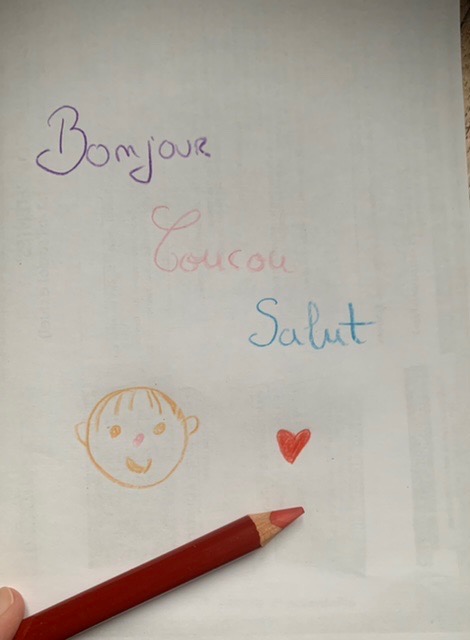 Bonjour
Coucou
Salut